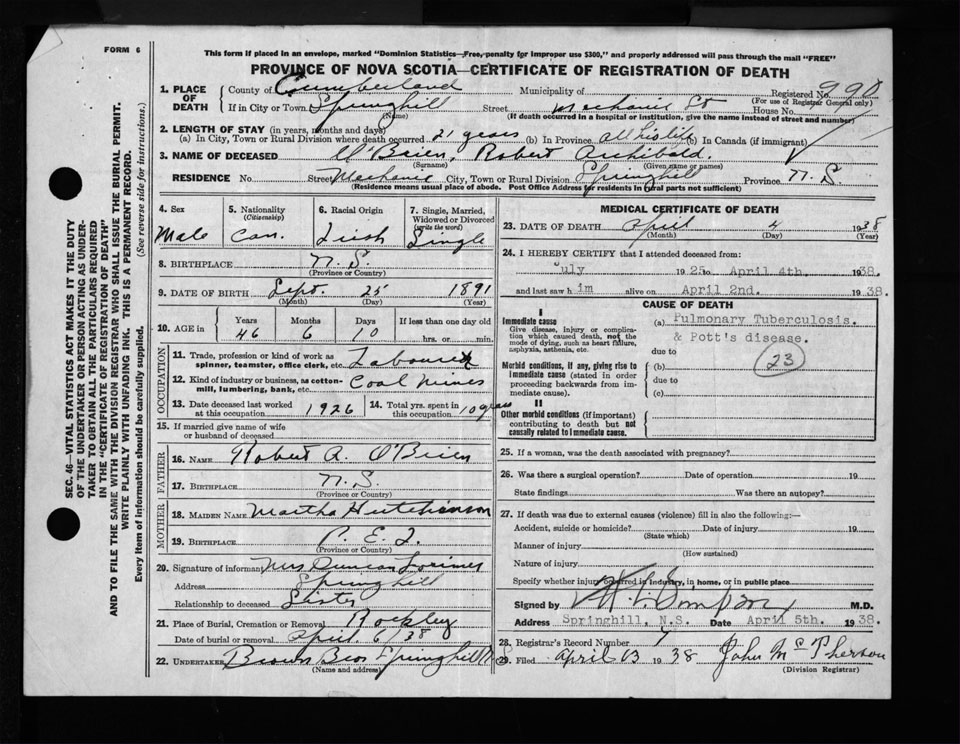 FORM 6
This form if placed in an envelope, marked "Dominion Statistics—Free, penalty for improper use $300," and properly addressed will pass through the mail "FREE"
PROVINCE OF NOVA SCOTIA—CERTIFICATE OF REGISTRATION OF DEATH
SEC. 46—VITAL STATISTICS ACT MAKES IT THE DUTY
OF THE UNDERTAKER OR PERSON ACTING AS UNDER-
TAKER TO OBTAIN ALL THE PARTICULARS REQUIRED
IN THE "CERTIFICATE OF REGISTRATION OF DEATH"
AND TO FILE THE SAME WITH THE DIVISION REGISTRAR WHO SHALL ISSUE THE BURIAL PERMIT.
WRITE PLAINLY WITH UNFADING INK. THIS IS A PERMANENT RECORD.
Every item of information should be carefully supplied. (See reverse side for instructions.)
1. PLACE OF DEATH County of Cumberland Municipality of Registered No. 990
(For use of Registrar General only)
If in City or Town Springhill Street Mechanic St House No.
(Name) (If death occurred in a hospital or institution, give the name instead of street and number)
2. LENGTH OF STAY (in years, months and days)
(a) In City, Town or Rural Division where death occurred 21 years (b) In Province all his life (c) In Canada (if immigrant)
3. NAME OF DECEASED O'Brien, Robert Archibald.
(Surname) (Given name or names)
RESIDENCE No. Street Mechanic City, Town or Rural Division Springhill Province N. S
(Residence means usual place of abode. Post Office Address for residents in rural parts not sufficient)
4. Sex Male
5. Nationality (Citizenship) Can.
6. Racial Origin Irish
7. Single, Married, Widowed or Divorced (write the word) Single
8. BIRTHPLACE N. S.
(Province or Country)
9. DATE OF BIRTH Sept. 25 1891
(Month) (Day) (Year)
10. AGE in Years 46 Months 6 Days 10 If less than one day old hrs. or min.
OCCUPATION
11. Trade, profession or kind of work as spinner, teamster, office clerk, etc. Labourer
12. Kind of industry or business, as cotton-mill, lumbering, bank, etc. Coal Mines
13. Date deceased last worked at this occupation 1926 14. Total yrs. spent in this occupation 10 years
15. If married give name of wife or husband of deceased
FATHER
16. NAME Robert A. O'Brien
17. BIRTHPLACE N. S.
(Province or Country)
MOTHER
18. MAIDEN NAME Martha Hutchinson
19. BIRTHPLACE P. E. I.
(Province or Country)
20. Signature of informant Mrs Duncan
Address Springhill
Relationship to deceased Sister
21. Place of Burial, Cremation or Removal Rockley
Date of burial or removal April 6/38
22. UNDERTAKER Brown Bros Springhill
(Name and address)
MEDICAL CERTIFICATE OF DEATH
23. DATE OF DEATH April 4 1938
(Month) (Day) (Year)
24. I HEREBY CERTIFY that I attended deceased from:
July 1925 to April 4th. 1938.
and last saw him alive on April 2nd. 1938.
CAUSE OF DEATH
I
Immediate cause
Give disease, injury or complication which caused death, not the mode of dying, such as heart failure, asphyxia, asthenia, etc.
(a) Pulmonary Tuberculosis.
& Pott's disease.
due to
Morbid conditions, if any, giving rise to immediate cause (stated in order proceeding backwards from immediate cause).
(b) 23
due to
(c)
II
Other morbid conditions (if important) contributing to death but not causally related to immediate cause.
25. If a woman, was the death associated with pregnancy?
26. Was there a surgical operation? Date of operation 19
State findings Was there an autopsy?
27. If death was due to external causes (violence) fill in also the following:—
Accident, suicide or homicide? Date of injury 19
(State which)
Manner of injury
(How sustained)
Nature of injury
Specify whether injury occurred in industry, in home, or in public place
Signed by Simpson M.D.
Address Springhill, N.S. Date April 5th. 1938.
28. Registrar's Record Number 7
29. Filed April 13 1938 John McPherson
(Division Registrar)